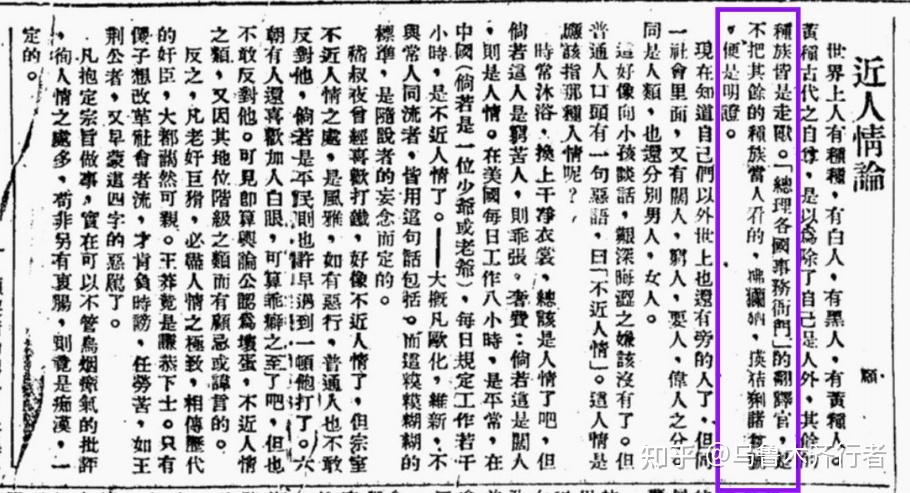 近人情論
世界上人有種種，有白人，有黑人，有黃種人。
黃種古代之自尊，是以為除了自己是人外，其餘
種族皆是走獸。「總理各國事務衙門」的翻譯官，
不把其餘的種族當人看的，
，便是明證。
現在知道自己們以外世上也還有旁的人了，但
一社會里面，又有闊人，窮人，要人，偉人之分
同是人類，也還分別男人，女人。
這好像向小孩談話，艱深晦澀之嫌該沒有了。但
普通人口頭有一句惡語，曰「不近人情」。這人情是
應該指那種人情呢？
時常沐浴，換上干淨衣裳，總該是人情了吧，但
倘若這人是窮苦人，則乖張，奢費：倘若這是闊人
，則是人情。在美國每日工作八小時，是平常，在
中國（倘若是一位少爺或老爺），每日規定工作若干
小時，是不近人情了。——大概凡歐化，維新，不
與常人同流者，皆用這句話包括。而這糢糊糊的
標準，是隨說者的妄念而定的。
嵇叔夜曾經喜歡打鐵，好像不近人情了，但宗室
不近人情之處，是風雅，如有惡行，普通人也不敢
反對他，倘若是平民則也許早遇到一頓飽打了。六
朝有人還喜歡加人白眼，可算乖癖之至了吧，但也
不敢反對他。可見即算輿論公認為壞蛋，不近人情
之類，又因其地位階級之類而有顧忌或諱言的。
反之，凡老奸巨猾，必盡人情之極致，相傳歷代
的奸臣，大都藹然可親。王莽竟是謙恭下士。只有
傻子想改革社會者流，才肯負時謗，任勞苦，如王
荊公者，又早蒙這四字的惡罵了。
凡抱定宗旨做事，實在可以不管烏烟瘴氣的批評
，徇人情之處多，苟非另有衷腸，則竟是痴漢，一
定的。
知乎 @乌鲁木齐行者